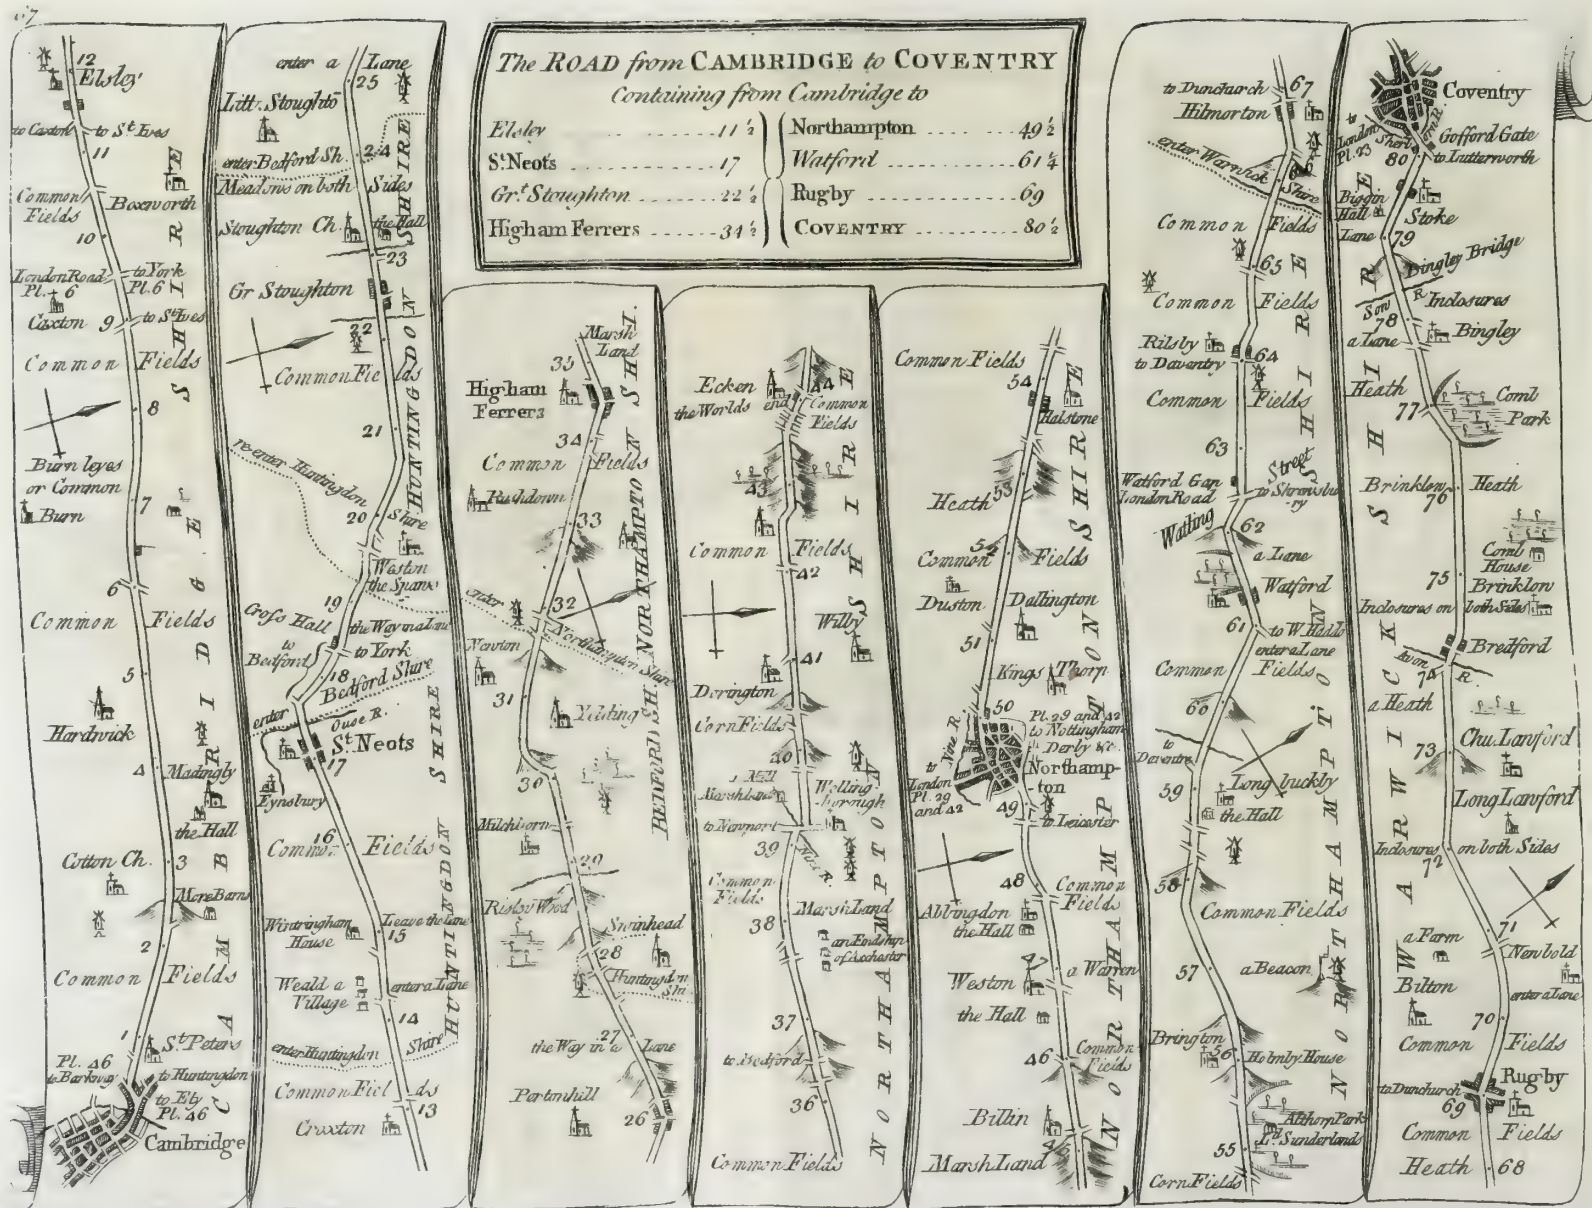 67
The ROAD from CAMBRIDGE to COVENTRY
Containing from Cambridge to
Elsley 11½
St. Neots 17
Grt. Stoughton 22½
Higham Ferrers 34½
Northampton 49½
Watford 61¼
Rugby 69
COVENTRY 80½
12
Elsley
to Caxton
to St. Ives
11
Common
Fields
Boxworth
10
London Road
Pl. 6
to York
Pl. 6
Caxton
9
to St. Ives
Common Fields
8
Burn leyes
or Common
7
Burn
6
Common Fields
5
Hardwick
4
Madingly
the Hall
Cotton Ch.
3
More Barns
2
Common Fields
1
St. Peters
Pl. 46
to Barkway
to Huntingdon
to Ely
Pl. 46
Cambridge
CAMBRIDGE SHIRE
enter a Lane
25
Litt. Stoughto
24
enter Bedford Sh.
Meadows on both Sides
Stoughton Ch.
the Hall
23
Gr Stoughton
22
Common Fields
21
re-enter Huntingdon Shire
20
Weston
the Spanx
19
Cross Hall
the Way in a Lane
to
Bedford
to York
18
Bedford Shire
enter
Ouse R.
St. Neots
17
Eynsbury
16
Common Fields
Wintringham
House
Leave the Lane
15
Weald a
Village
enter a Lane
14
enter Huntingdon Shire
Common Fields
13
Croxton
HUNTINGDON SHIRE
HUNTINGDON SHIRE
Marsh
Land
35
Higham
Ferrers
34
Common Fields
Rushdown
33
32
enter Northampton Shire
Newton
31
Yelding
30
Milchborn
29
Risley Wood
Swinhead
28
Huntingdon
Shi
27
the Way in a Lane
Pertonhill
26
NORTHAMPTO N SHI.
BEDFORD SH.
Ecken
the Worlds end
44
Common
Fields
43
Common Fields
42
Wilby
41
Dorington
Corn Fields
40
a Mill
Marsh Land
Welling
borough
to Newport
39
Nine R.
Common
Fields
Marsh Land
38
an Endship
of Archester
37
to Bedford
36
Common Fields
NORTHAMPTON SHIRE
Common Fields
54
Halstone
Heath
53
52
Common Fields
Duston
Dallington
51
Kings Thorp
50
Nine R.
Pl. 29 and 42
to Nottingham
Derby &c.
to
London
Pl. 29
and 42
Northamp-
ton
49
to Leicester
48
Common
Fields
Abbingdon
the Hall
47
a Warren
Weston
the Hall
46
Common
Fields
Billin
45
Marsh Land
NORTHAMPTON SHIRE
to Dunchurch
67
Hilmorton
enter Warwick Shire
66
Common Fields
65
Common Fields
Rilsby
to Daventry
64
Common Fields
63
Watford Gap
London Road
Watling Street
to Shrewsbu
ry
62
a Lane
Watford
61
to W. Haddo
enter a Lane
Common Fields
60
to
Daventre
59
Long buckby
the Hall
58
Common Fields
57
a Beacon
Brington
56
Holmby House
Althorp Park
Ld. Sunderlands
55
Corn Fields
NORTHAMPTON SHIRE
Coventry
to
London
Pl. 23
Sherb
orn R.
Gofford Gate
80
to Lutterworth
Biggin
Hall
Lane
Stoke
79
Bingley Bridge
Son R
Inclosures
78
a Lane
Bingley
Heath
77
Comb
Park
Brinklow Heath
76
Comb
House
75
Brinklon
Inclosures on both Sides
Bredford
Avon R.
74
a Heath
73
Chu. Lawford
Long Lawford
Inclosures on both Sides
72
71
a Farm
Newbold
Bilton
enter a Lane
70
Common Fields
Rugby
to Dunchurch
69
Common Fields
Heath
68
WARWICK SHIRE